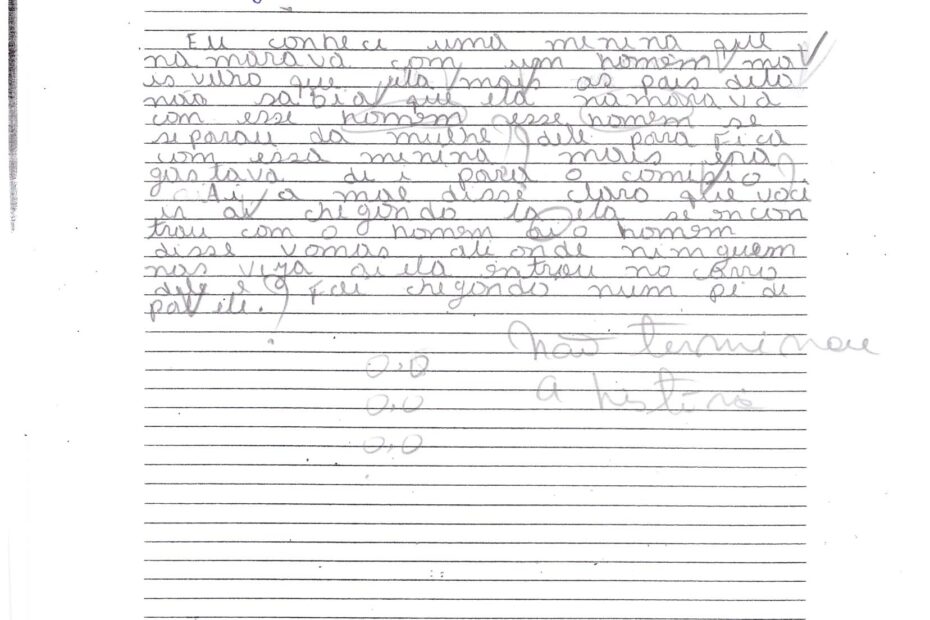 Eu conheci uma menina que
namorava com um homem ma
is velho que ela mais os pais dela
não sabia que ela namorava
com esse homem esse homem se
separau da mulhe dele para fica
com essa menina mais era
gustava di i para o
Ai a mae disse claro que você
ir ai chegondo la ela se encon
trou com o homem ai o homem
disse vomos ali onde ninguem
nos veja ai ela entrou no carro
dele e foi chegondo num pi di
pau ele.
não terminou
a história
0,0
0,0
0,0